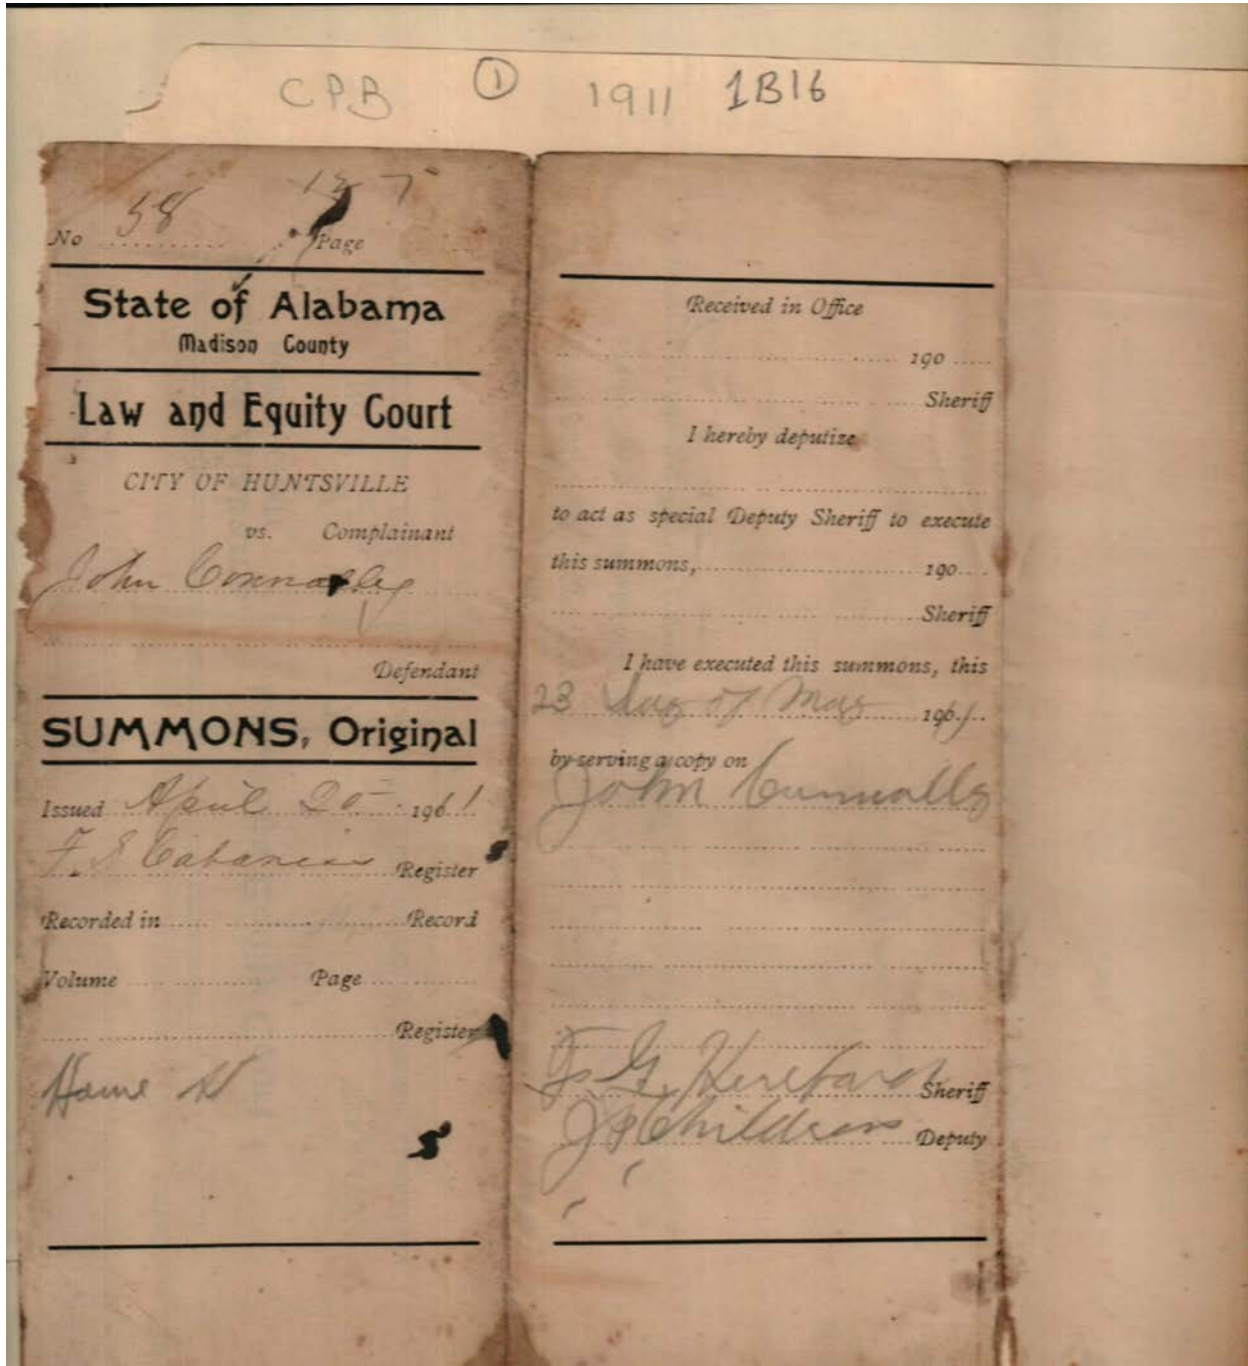 CPB ① 1911 1B16
58 127
No Page
State of Alabama
Madison County
Law and Equity Court
CITY OF HUNTSVILLE
vs. Complainant
John Connally
Defendant
SUMMONS, Original
Issued April 20 1911
F. S. Cabaniss Register
Recorded in Record
Volume Page
Register
Received in Office
190
Sheriff
I hereby deputize
to act as special Deputy Sheriff to execute
this summons, 190
Sheriff
I have executed this summons, this
23 day of May 1911
by serving a copy on
John Connally
Sheriff
Deputy